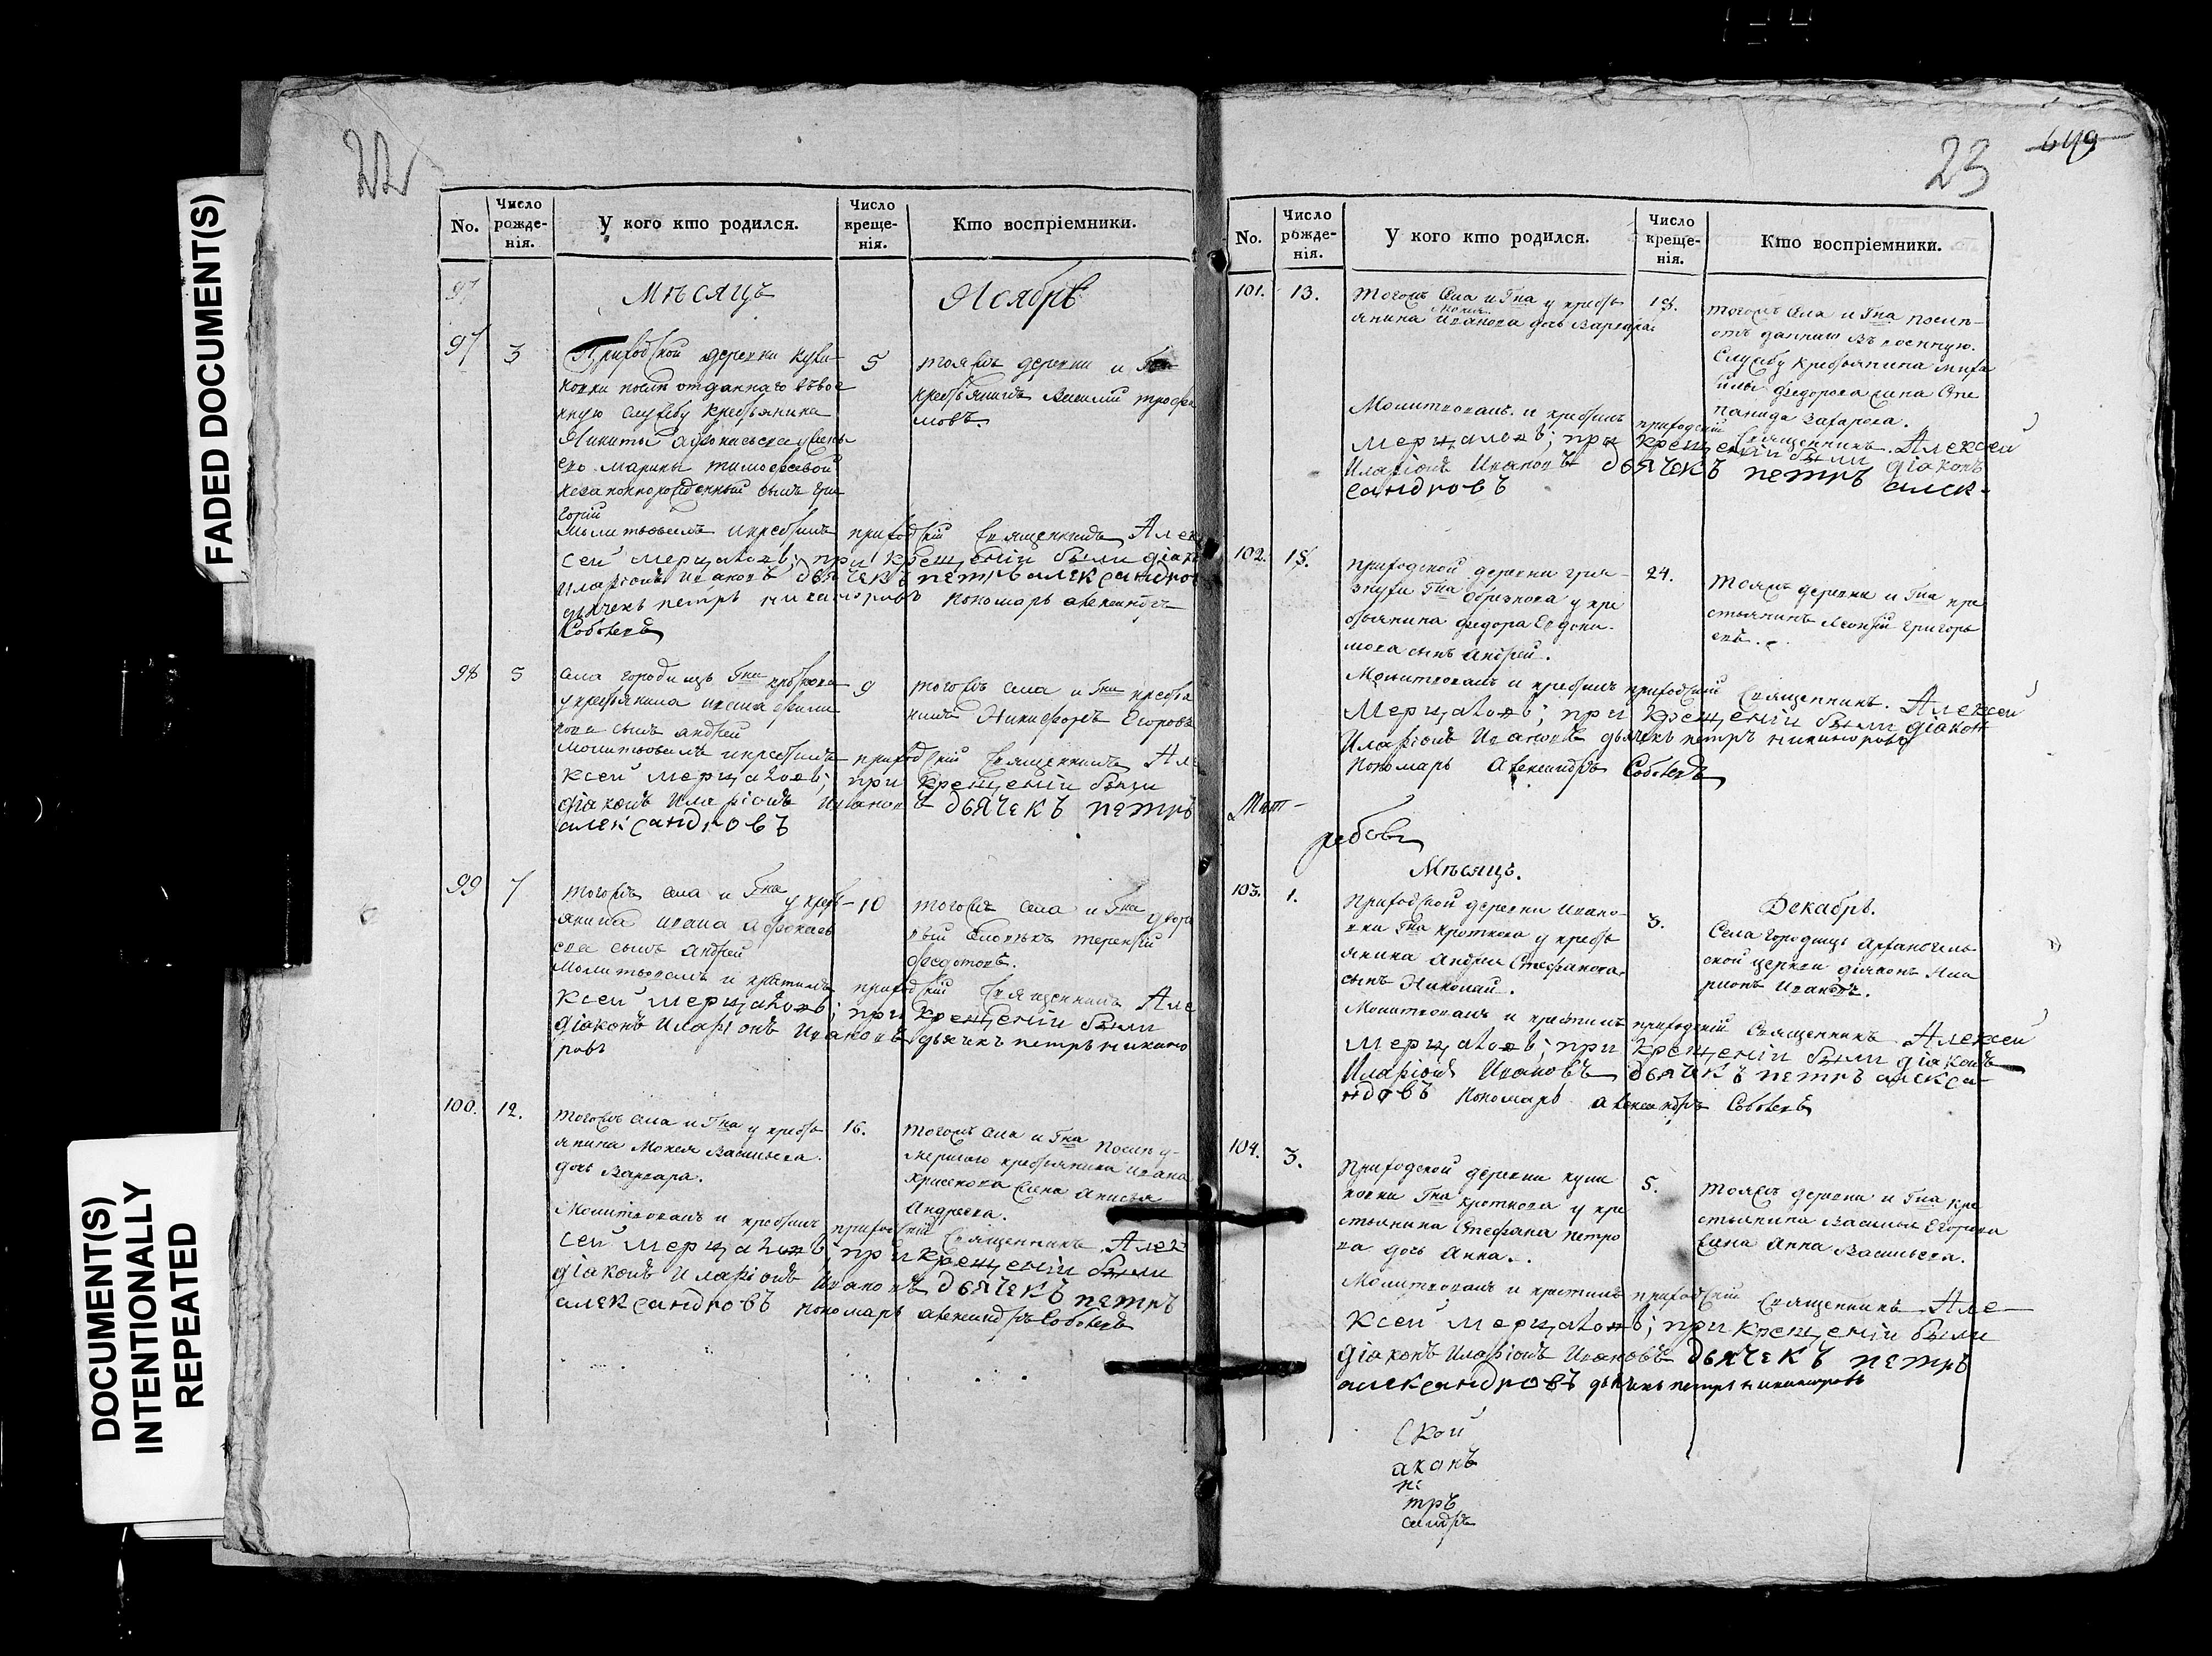 FADED DOCUMENT(S)
DOCUMENT(S)
INTENTIONALLY
REPEATED
22
No.
Число рожде-нія.
У кого кто родился.
Число креще-нія.
Кто воспріемники.
97
Мѣсяцъ
Ноябрь
97
3
Приходской деревни
после отданнаго въ вое
нную службу крестьянина
Никиты
его Марины тимофеевой
незаконнорожденный сынъ Гри
горій
5
тояжъ деревни и
крестьянинъ Василий трофи
мовъ
Молитвовалъ и крестилъ приходскій Священникъ Алек
сей мерцаловъ; при крещеніи были діаконъ
Иларіонъ Ивановъ дьячекъ петръ александров
дьячекъ петръ никаноровъ пономарь александръ
Соболевъ
98
5
села городищъ Гна
у крестьянина ивана
сынъ андрей
9
тогожъ села и Гна крестья
нинъ Никифоръ Егоровъ
Молитвовалъ и крестилъ приходскій Священникъ Але
ксей мерцаловъ; при крещеніи были
діаконъ Иларіонъ Ивановъ дьячекъ петръ
александровъ
99
7
тогожъ села и Гна у кресть
янина ивана афонасье
ва сынъ андрей
10
тогожъ села и Гна дворо
вый терентій
федотовъ.
Молитвовалъ и крестилъ приходскій Священникъ Але
ксей мерцаловъ; при крещеніи были
діаконъ Иларіонъ Ивановъ дьячекъ петръ никано
ровъ
100.
12.
тогожъ села и Гна у кресть
янина Мокея Васильева
дочь Варвара.
16.
тогожъ села и Гна после у-
мершаго крестьянина ивана
жена Анисья
Андреева.
Молитвовалъ и крестилъ приходскій Священникъ Алек
сей мерцаловъ; при крещеніи были
діаконъ Иларіонъ Ивановъ дьячекъ петръ
александровъ пономарь александръ Соболевъ
23
649
No.
Число рожде-нія.
У кого кто родился.
Число креще-нія.
Кто воспріемники.
101.
13.
тогожъ села и Гна у кресть
янина Иванова дочь Варвара.
18.
тогожъ села и Гна после
отданнаго въ военную.
Службу крестьянина миха
йлы федорова жена Сте
панида Захарова.
Молитвовалъ и крестилъ приходскій Священникъ Алексей
мерцаловъ; при крещеніи были діаконъ
Иларіонъ Ивановъ дьячекъ петръ алек-
сандровъ
102.
18.
приходской деревни гря-
знухи Гна Обрезкова у кре
стьянина федора Евдоки-
мова сынъ андрей.
24.
тояжъ деревни и Гна кре
стьянинъ Леонтій григорь
евъ.
Молитвовалъ и крестилъ приходскій Священникъ Алексей
мерцаловъ; при крещеніи были діаконъ
Иларіонъ Ивановъ дьячекъ петръ никаноровъ
пономарь александръ Соболевъ
Мѣсяцъ.
Декабрь.
103.
1.
приходской деревни Ивано-
вки Гна кроткова у кресть
янина Андрея Стефанова
сынъ Николай.
3.
Села городищъ архангель
ской церкви діаконъ Ила
ріонъ Ивановъ.
Молитвовалъ и крестилъ приходскій Священникъ Алексей
мерцаловъ; при крещеніи были діаконъ
Иларіонъ Ивановъ дьячекъ петръ алекса-
ндровъ пономарь александръ Соболевъ
104.
3.
приходской деревни
Гна кроткова у кре
стьянина Стефана петро
ва дочь Анна.
5.
тояжъ деревни и Гна кре
стьянина Василья Егорова
жена Анна Васильева.
Молитвовалъ и крестилъ приходскій Священникъ Але-
ксей мерцаловъ; при крещеніи были
діаконъ Иларіонъ Ивановъ дьячекъ петръ
александровъ дьячекъ петръ никаноровъ
ской
аконъ
пе
тръ
сандръ